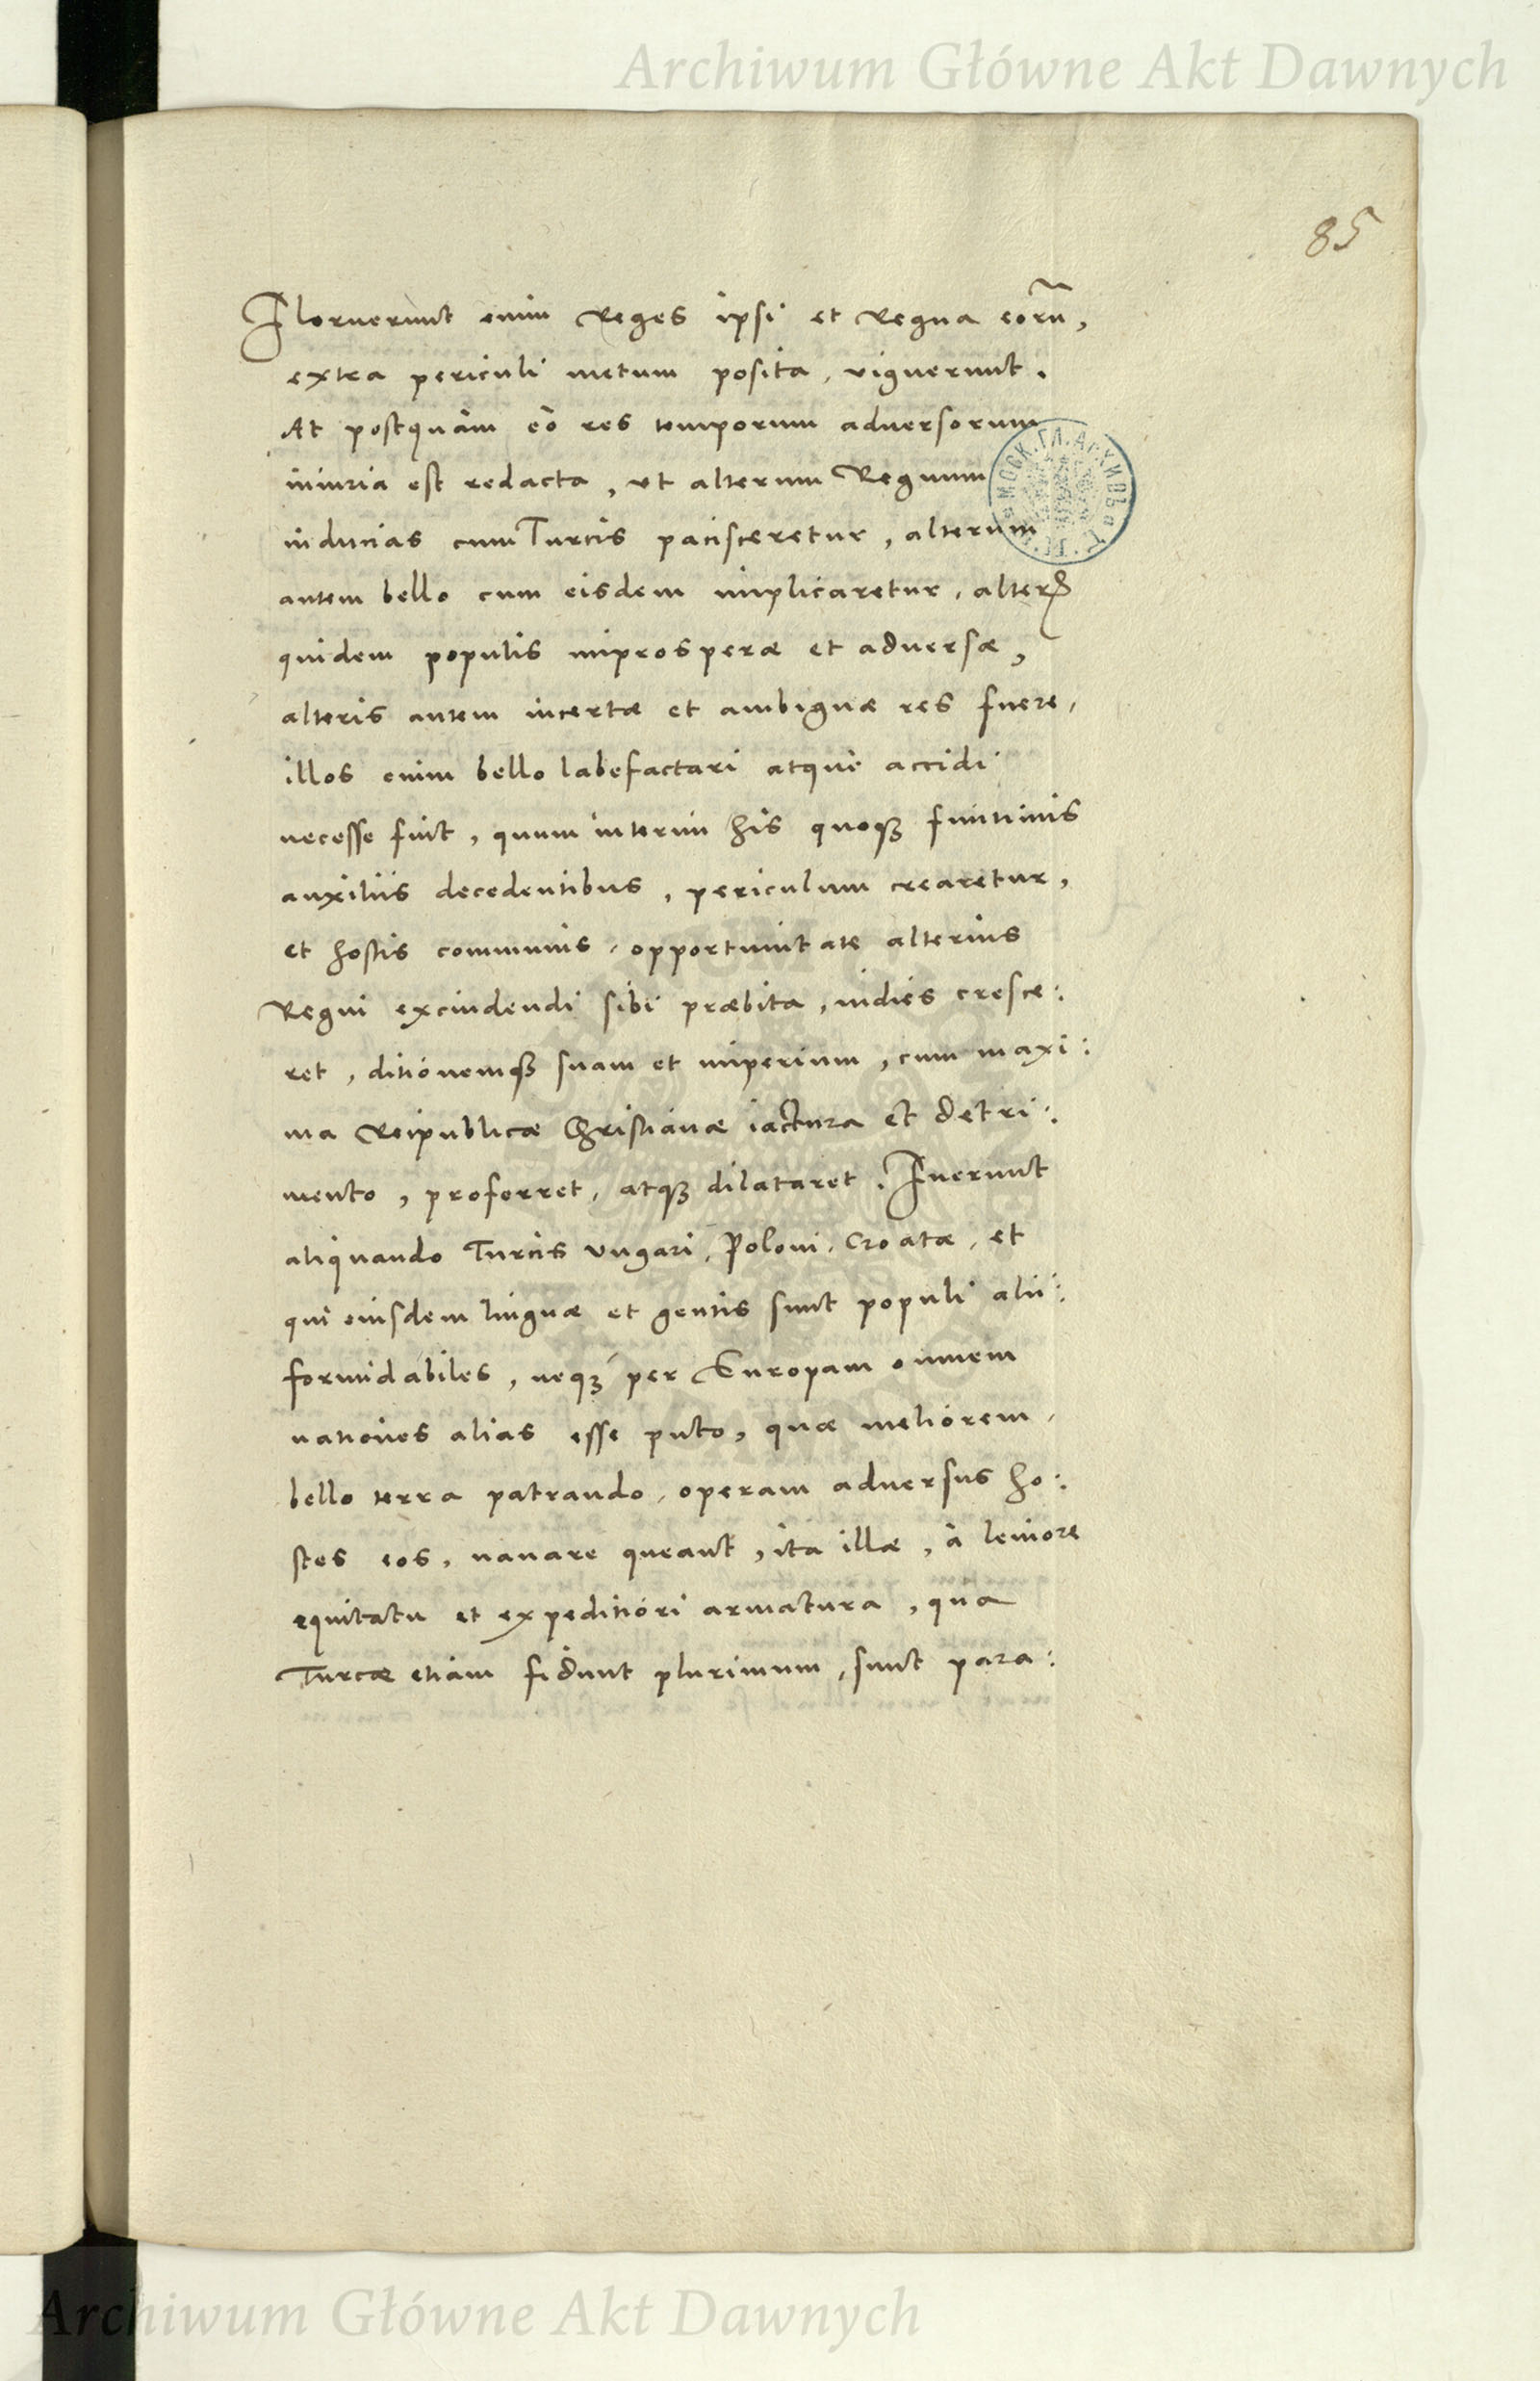 Archiwum Główne Akt Dawnych
85
Floruerunt enim Reges ipsi et Regna eorũ,
extra periculi metum posita, viguerunt.
At postquàm eò res temporum aduersorum
iniuria est redacta, vt alterum Regnum
inducias cum Turcis pacisceretur, alterum
autem bello cum eisdem implicaretur, alterꝭ
quidem populis improsperæ et aduersæ,
alteris autem incertæ et ambiguæ res fuere,
illos enim bello labefactari atque accidi
necesse fuit, quum interim his quoqꝫ finitimis
auxiliis decedentibus, periculum crearetur,
et hostis communis, opportunitate alterius
Regni exscindendi sibi præbita, indies cresce:
ret, ditionemqꝫ suam et imperium, cum maxi:
ma Reipublicæ Christianæ iactura et detri:
mento, proferret, atqꝫ dilataret. Fuerunt
aliquando Turcis Vngari, Poloni, Croatæ, et
qui eiusdem linguæ et gentis sunt populi alii:
formidabiles, neqꝫ per Europam omnem
nationes alias esse puto, quæ meliorem,
bello terra patrando, operam aduersus ho:
stes eos, nauare queant, ita illæ, à leuiore
equitatu et expeditiori armatura, qua
Turcæ etiam fidunt plurimum, sunt para:
Archiwum Główne Akt Dawnych